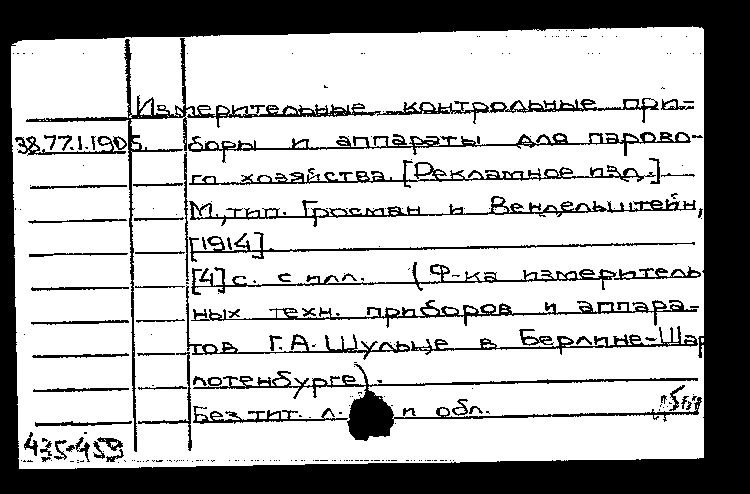 Измерительные контрольные при-
38.77.1.1905. боры и аппараты для парово-
го хозяйства. [Рекламное изд.].
М., тип. Гросман и Вендельштейн,
[1914].
[4] с. с илл. (Ф-ка измеритель-
ных техн. приборов и аппара-
тов Г.А. Шульце в Берлине-Шар
лотенбурге).
Без тит. л. и обл.
435-459